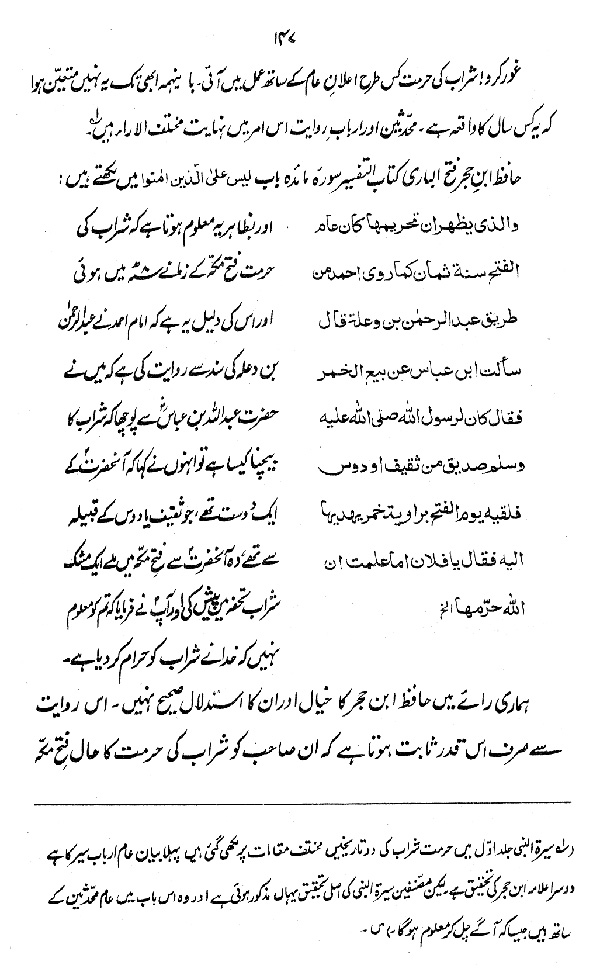 ۱۴۷
غور کرو! شراب کی حرمت کس طرح اعلانِ عام کے ساتھ عمل میں آئی۔ با ینہمہ ابھی تک یہ نہیں متعیّن ہوا
کہ یہ کس سال کا واقعہ ہے۔ محدّثین اور اربابِ روایت اس امر میں نہایت مختلف الآراء ہیں۔
حافظ ابنِ حجر فتح الباری کتاب التفسیر سورۂ مائدہ باب لیس علی الّذین اٰمنوا میں لکھتے ہیں:
والذی یظهر ان تحریمها کان عام
الفتح سنة ثمان کما روی احمد من
طریق عبد الرحمٰن بن وعلة قال
سألت ابن عباس عن بیع الخمر
فقال کان لرسول الله صلی الله علیه
وسلم صدیق من ثقیف او دوس
فلقیه یوم الفتح براویة خمر یهدیها
الیه فقال یا فلان اما علمت ان
الله حرّمها الخ
اور بظاہر یہ معلوم ہوتا ہے کہ شراب کی
حرمت فتح مکہّ کے زمانے ۸ھ میں ہوئی
اور اس کی دلیل یہ ہے کہ امام احمد نے عبدالرحمٰن
بن دعلہ کی سند سے روایت کی ہے کہ میں نے
حضرت عبداللہ بن عباسؓ سے پوچھا کہ شراب کا
بیچنا کیسا ہے تو انہوں نے کہا کہ آنحضرتؐ کے
ایک دوست تھے، جو ثقیف یا دوس کے قبیلہ
سے تھے، وہ آنحضرتؐ سے فتح مکّہ میں ملے ایک مشک
شراب تحفہ میں پیش کی اور آپؐ نے فرمایا کہ تم کو معلوم
نہیں کہ خدا نے شراب کو حرام کر دیا ہے۔
ہماری رائے میں حافظ ابن حجر کا خیال اور ان کا استدلال صحیح نہیں۔ اس روایت
سے صرف اس قدر ثابت ہوتا ہے کہ ان صاحب کو شراب کی حرمت کا حال فتح مکّہ
لہ سیرۃ النبی جلد اوّل میں حرمت شراب کی دو تاریخیں مختلف مقامات پر لکھی گئی ہیں پہلا بیان عام ارباب سیر کا ہے
دوسرا علامہ ابن حجر کی تحقیق ہے لیکن مصنّفین سیرۃ النبی کی اصل تحقیق یہاں مذکور ہوئی ہے اور وہ اس باب میں عام محدّثین کے
ساتھ ہیں جیسا کہ آگے چل کر معلوم ہو گا۔